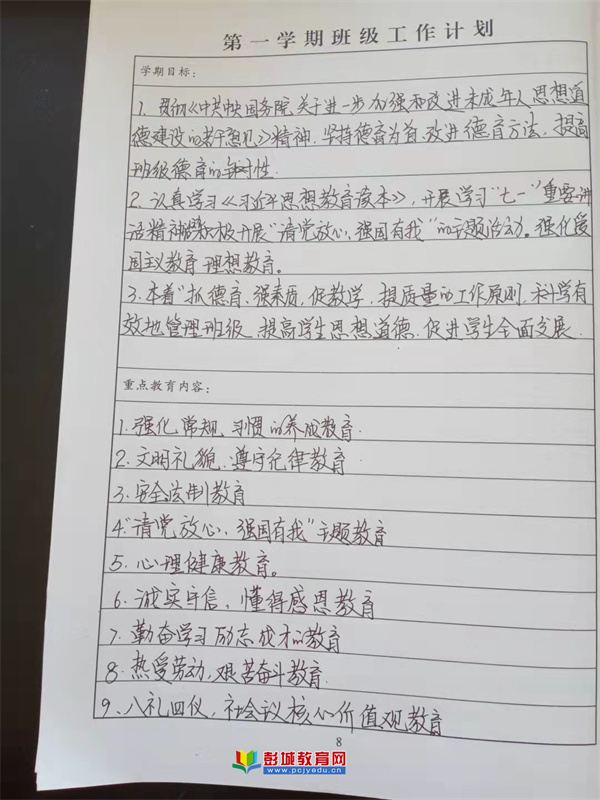 第一学期班级工作计划
学期目标：
1. 贯彻《中共中央国务院关于进一步加强和改进未成年人思想道
德建设的若干意见》精神，坚持德育为首，改进德育方法，提高
班级德育的针对性.
2. 认真学习《习近平思想教育读本》，开展学习“七一”重要讲
话精神积极开展“请党放心，强国有我”的主题活动。强化爱
国主义教育 理想教育。
3. 本着“抓德育、强素质，促教学，提质量的工作原则，科学有
效地管理班级 提高学生思想道德，促进学生全面发展.
重点教育内容：
1. 强化常规、习惯的养成教育.
2. 文明礼貌、遵守纪律教育
3. 安全法制教育
4.“请党放心，强国有我”主题教育
5. 心理健康教育。
6. 诚实守信、懂得感恩教育
7. 勤奋学习 励志成才的教育
8. 热爱劳动，艰苦奋斗教育.
9、八礼四仪，社会核心价值观教育
8
彭城教育网
www.pcjyedu.cn